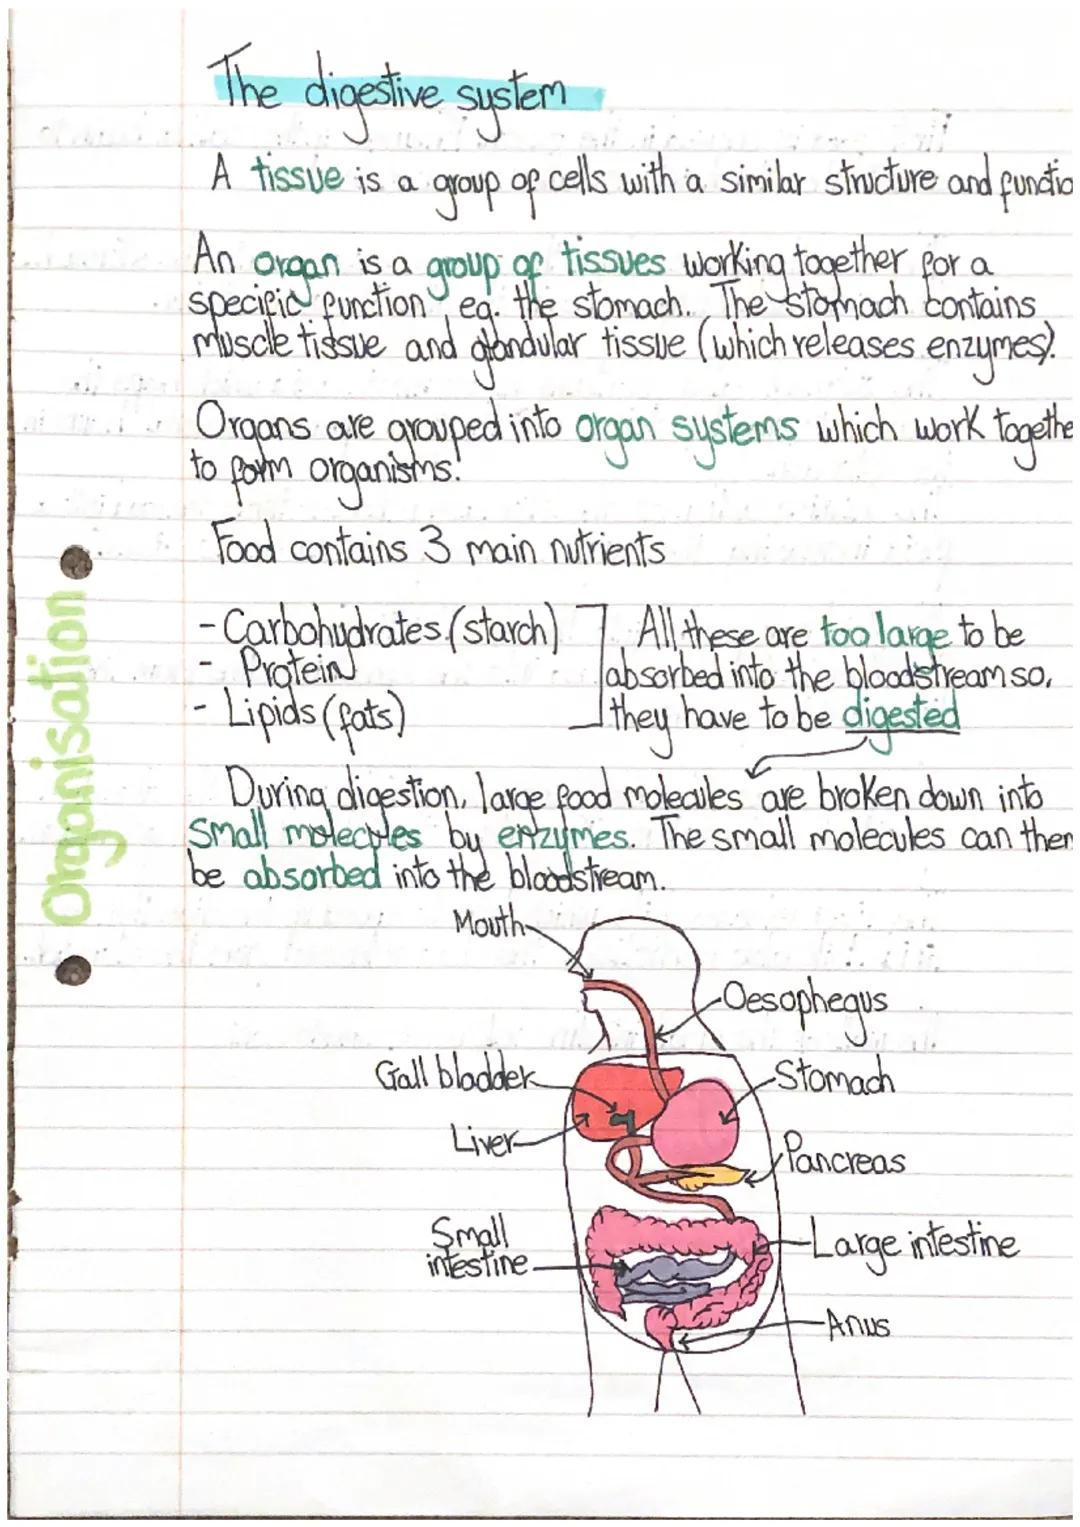 The digestive system
A tissue is a group of cells with a similar structure and functio
An organ is a group of tissues working together for a
specific function, eg. the stomach. The stomach contains
muscle tissue and glandular tissue (which releases enzymes).
Organs are grouped into organ systems which work togethe
to form organisms.
Food contains 3 main nutrients
- Carbohydrates (starch)
- Protein
- Lipids (fats)
All these are too large to be
absorbed into the bloodstream so,
they have to be digested
During digestion, large food molecules are broken down into
small molecules by enzymes. The small molecules can then
be absorbed into the bloodstream.
Organisation
Mouth
Oesophegus
Gall bladder
Stomach
Liver
Pancreas
Small
intestine
Large intestine
Anus